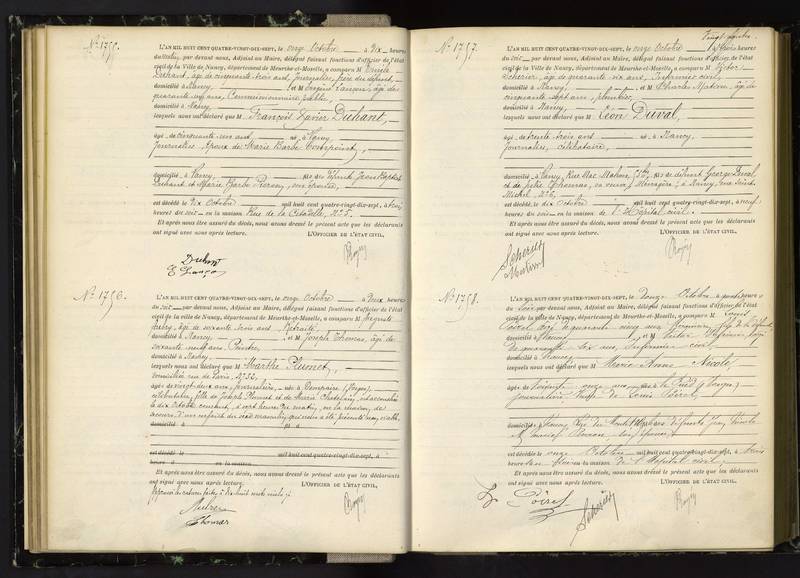 N° 1755.
L'AN MIL HUIT CENT QUATRE-VINGT-DIX-SEPT, le onze Octobre à dix heures
du matin, par devant nous, Adjoint au Maire, délégué faisant fonctions d'officier de l'état
civil de la Ville de Nancy, département de Meurthe-et-Moselle, a comparu M
Duhant, âgé de cinquante trois ans, Journalier, frère du défunt,
domicilié à Nancy, et M Eugène Lançon, âgé de
quarante ans, Commissionnaire public,
domicilié à Nancy
lesquels nous ont déclaré que M François Xavier Duhant,
âgé de cinquante un ans né à Nancy
Journalier, époux de Marie Barbe Compoint,
domicilié à Nancy, fils de défunts Jean Baptiste
Duhant et Marie Barbe Pierson, son épouse,
est décédé le dix Octobre mil huit cent quatre-vingt-dix-sept, à trois
heures du soir en la maison Rue de la Citadelle, N° 5.
Et après nous être assuré du décès, nous avons dressé le présent acte que les déclarants
ont signé avec nous après lecture. L'OFFICIER DE L'ÉTAT CIVIL,
Duhant
E Lançon
N° 1756.
L'AN MIL HUIT CENT QUATRE-VINGT-DIX-SEPT, le onze Octobre à deux heures
du soir, par devant nous, Adjoint au Maire, délégué faisant fonctions d'officier de l'état
civil de la ville de Nancy, département de Meurthe-et-Moselle, a comparu M Auguste
âgé de soixante trois ans, Retraité
domicilié à Nancy et M Joseph Thomas, âgé de
soixante neuf ans, Peintre,
domicilié à Nancy
lesquels nous ont déclaré que M Marthe Plumet,
domiciliée rue de Paris, N° 32,
âgée de vingt deux ans, Journalière, née à Dompaire (Vosges)
célibataire, fille de Joseph Plumet et de Marie Chatelain, est accouchée
le dix Octobre courant, à sept heures du matin, en sa demeure, de
d'un enfant du sexe masculin qui nous a été présenté sans vie
domicilié à
est décédé le mil huit cent quatre-vingt-dix-sept, à
heure du en la maison
Et après nous être assuré du décès, nous avons dressé le présent acte que les déclarants
ont signé avec nous après lecture. L'OFFICIER DE L'ÉTAT CIVIL,
Thomas
N° 1757.
L'AN MIL HUIT CENT QUATRE-VINGT-DIX-SEPT, le onze Octobre à trois heures
du soir, par devant nous, Adjoint au Maire, délégué faisant fonctions d'officier de l'état
civil de la ville de Nancy, département de Meurthe-et-Moselle, a comparu M Victor
Scherier, âgé de quarante six ans, Infirmier civil,
domicilié à Nancy, et M Charles Mation, âgé de
cinquante sept ans, plantier
domicilié à Nancy,
lesquels nous ont déclaré que M Léon Duval,
âgé de trente trois ans né à Nancy
Journalier, célibataire,
domicilié à Nancy, Rue Mac Mahon, fils de défunt George Duval,
et de Julie Thomas, sa veuve, Ménagère, à Nancy, rue Saint
Michel, N° 6,
est décédé le dix Octobre mil huit cent quatre-vingt-dix-sept, à neuf
heures du soir en la maison de l'Hôpital civil.
Et après nous être assuré du décès, nous avons dressé le présent acte que les déclarants
ont signé avec nous après lecture. L'OFFICIER DE L'ÉTAT CIVIL,
N° 1758.
L'AN MIL HUIT CENT QUATRE-VINGT-DIX-SEPT, le douze Octobre à quatre heures
du soir par devant nous, Adjoint au Maire, délégué faisant fonctions d'officier de l'état
civil de la Ville de Nancy, département de Meurthe-et-Moselle, a comparu M Louis
Poirel âgé de quarante cinq ans fils de la défunte,
domicilié à Nancy, et M Victor Scherier âgé
de quarante six ans, Infirmier civil,
domicilié à Nancy
lesquels nous ont déclaré que M Marie Anne Nicole,
âgée de soixante onze ans née à (Vosges)
journalière Veuve de Louis Poirel,
domiciliée à Nancy,
est décédée le onze Octobre mil huit cent quatre-vingt-dix-sept, à trois
heures du en la maison de l'Hôpital civil.
Et après nous être assuré du décès, nous avons dressé le présent acte que les déclarants
ont signé avec nous après lecture. L'OFFICIER DE L'ÉTAT CIVIL,
Poirel